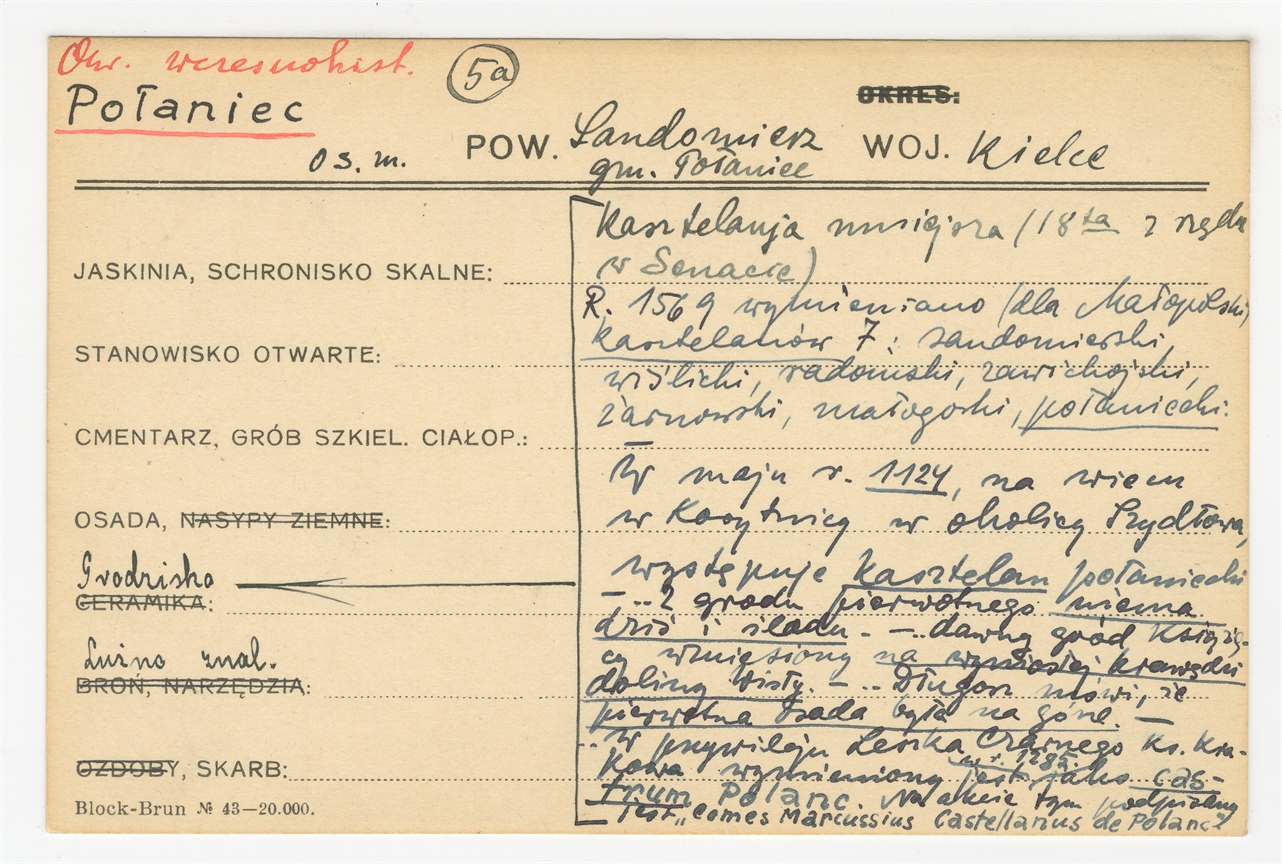 Okr. wczesnohist.
5a
Połaniec
OKRES:
os. m.
POW. Sandomierz
WOJ. Kielce
gm. Połaniec
JASKINIA, SCHRONISKO SKALNE:
STANOWISKO OTWARTE:
CMENTARZ, GRÓB SZKIEL. CIAŁOP.:
OSADA, NASYPY ZIEMNE:
Grodzisko
CERAMIKA:
Luźne znal.
BROŃ, NARZĘDZIA:
OZDOBY, SKARB:
Block-Brun № 43—20.000.
Kasztelanja mniejsza (18ta z rzędu
w Senacie)
R. 1569 wymieniano (dla Małopolski)
kasztelanów 7: sandomierski,
wiślicki, radomski, zawichojski,
żarnowski, małogoski, połaniecki.
W maju r. 1124, na wiecu
w Korytnicy w okolicy Szydłowa,
występuje kasztelan połaniecki
— .. z grodu pierwotnego niema
dziś i śladu. — .. dawny gród Książę-
cy wzniesiony na wyniosłej krawędzi
doliny Wisły. — .. Długosz mówi, że
pierwotna osada była na górze. —
.. W przywileju Leszka Czarnego Ks. Kra-
kowa w r. 1285. wymieniony jest jako cas-
trum Polanc. Na akcie tym podpisany
jest „comes Marcussius Castellanus de Polanc"